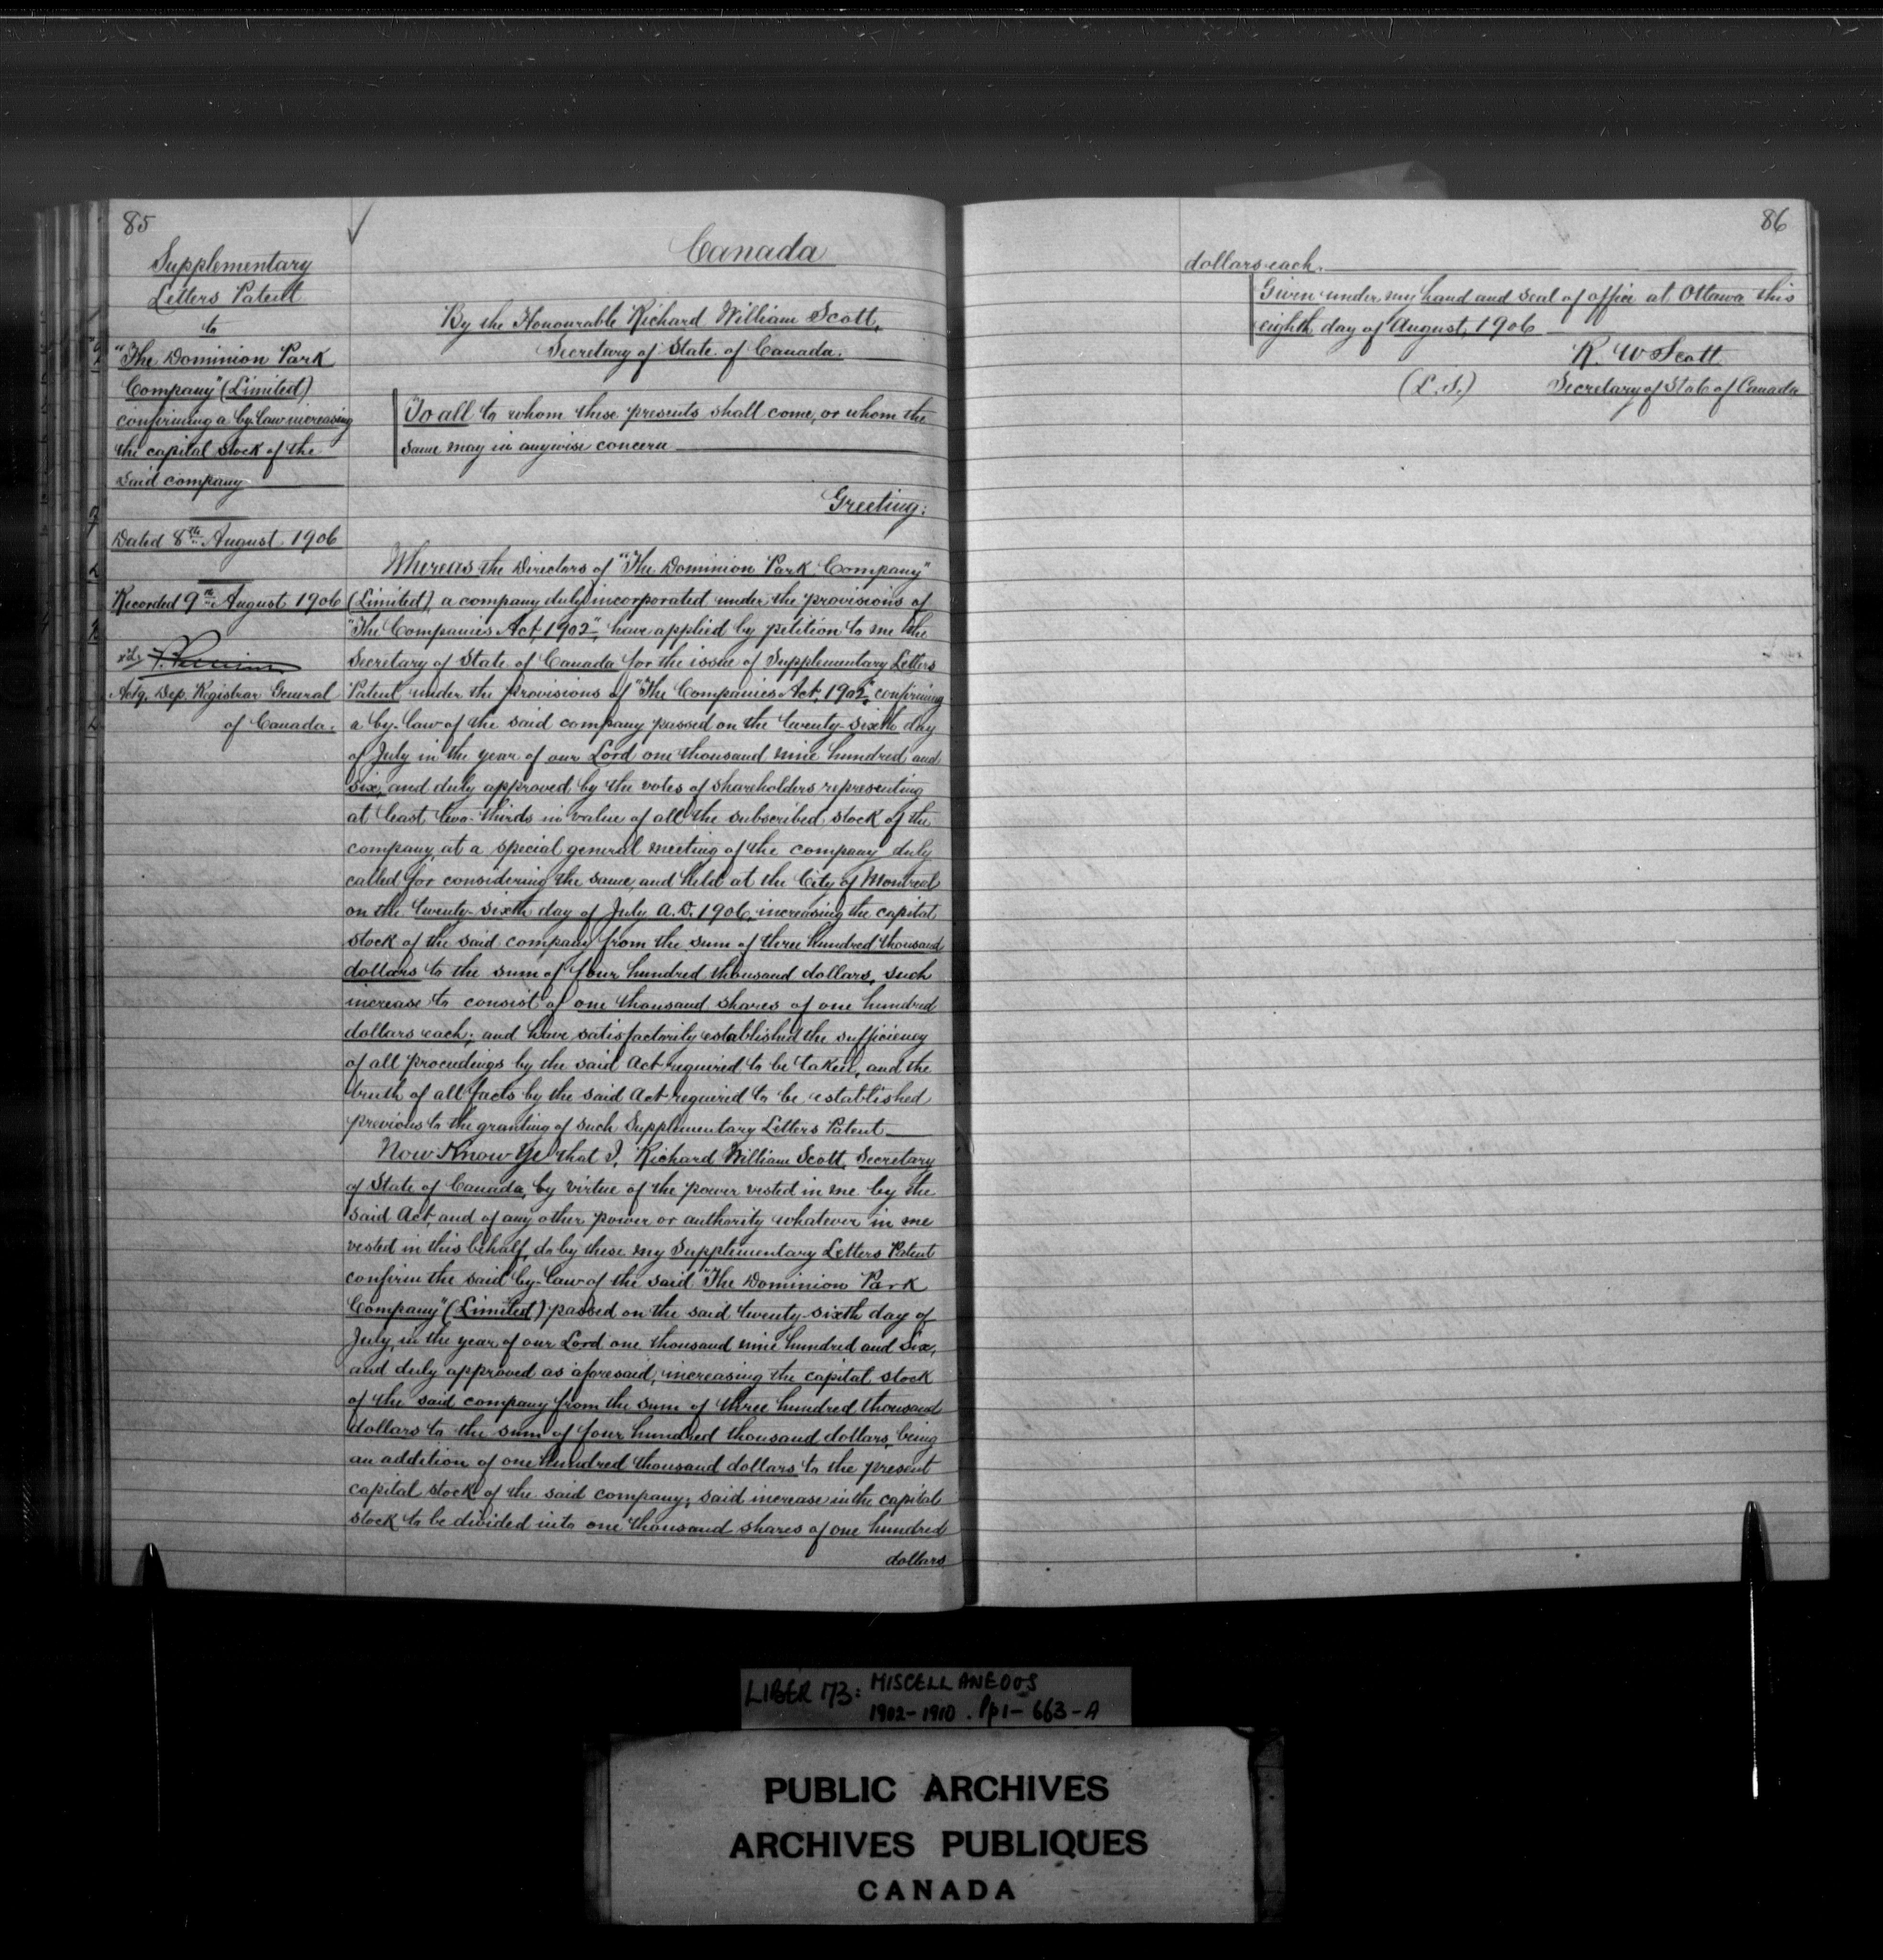 85
Supplementary
Letters Patent
to
"The Dominion Park
Company" (Limited)
confirming a by-law increasing
the capital stock of the
said company
Dated 8th August 1906
Recorded 9th August 1906
Actg. Dep. Registrar General
of Canada.
Canada
By the Honourable Richard William Scott,
Secretary of State of Canada.
To all to whom these presents shall come, or whom the
same may in anywise concern
Greeting:
Whereas the Directors of "The Dominion Park Company"
(Limited), a company duly incorporated under the provisions of
"The Companies Act, 1902", have applied by petition to me the
Secretary of State of Canada for the issue of Supplementary Letters
Patent under the provisions of "The Companies Act, 1902", confirming
a by-law of the said company passed on the twenty-sixth day
of July in the year of our Lord one thousand nine hundred and
six, and duly approved by the votes of shareholders representing
at least two-thirds in value of all the subscribed stock of the
company, at a special general meeting of the company duly
called for considering the same, and held at the City of Montreal
on the twenty-sixth day of July A.D. 1906, increasing the capital
stock of the said company from the sum of three hundred thousand
dollars to the sum of four hundred thousand dollars, such
increase to consist of one thousand shares of one hundred
dollars each; and have satisfactorily established the sufficiency
of all proceedings by the said Act required to be taken, and the
truth of all facts by the said Act required to be established
previous to the granting of such Supplementary Letters Patent
Now Know Ye that I, Richard William Scott, Secretary
of State of Canada, by virtue of the power vested in me by the
said Act, and of any other power or authority whatever in me
vested in this behalf, do by these my Supplementary Letters Patent
confirm the said by-law of the said "The Dominion Park
Company" (Limited) passed on the said twenty-sixth day of
July, in the year of our Lord one thousand nine hundred and six,
and duly approved as aforesaid, increasing the capital stock
of the said company from the sum of three hundred thousand
dollars to the sum of four hundred thousand dollars, being
an addition of one hundred thousand dollars to the present
capital stock of the said company, said increase in the capital
stock to be divided into one thousand shares of one hundred
dollars
86
dollars each.
Given under my hand and seal of office at Ottawa this
eighth day of August, 1906
R. W Scott
(L.S.) Secretary of State of Canada
LIBER 173: MISCELLANEOUS
1902-1910. Pp 1-663-A
PUBLIC ARCHIVES
ARCHIVES PUBLIQUES
CANADA